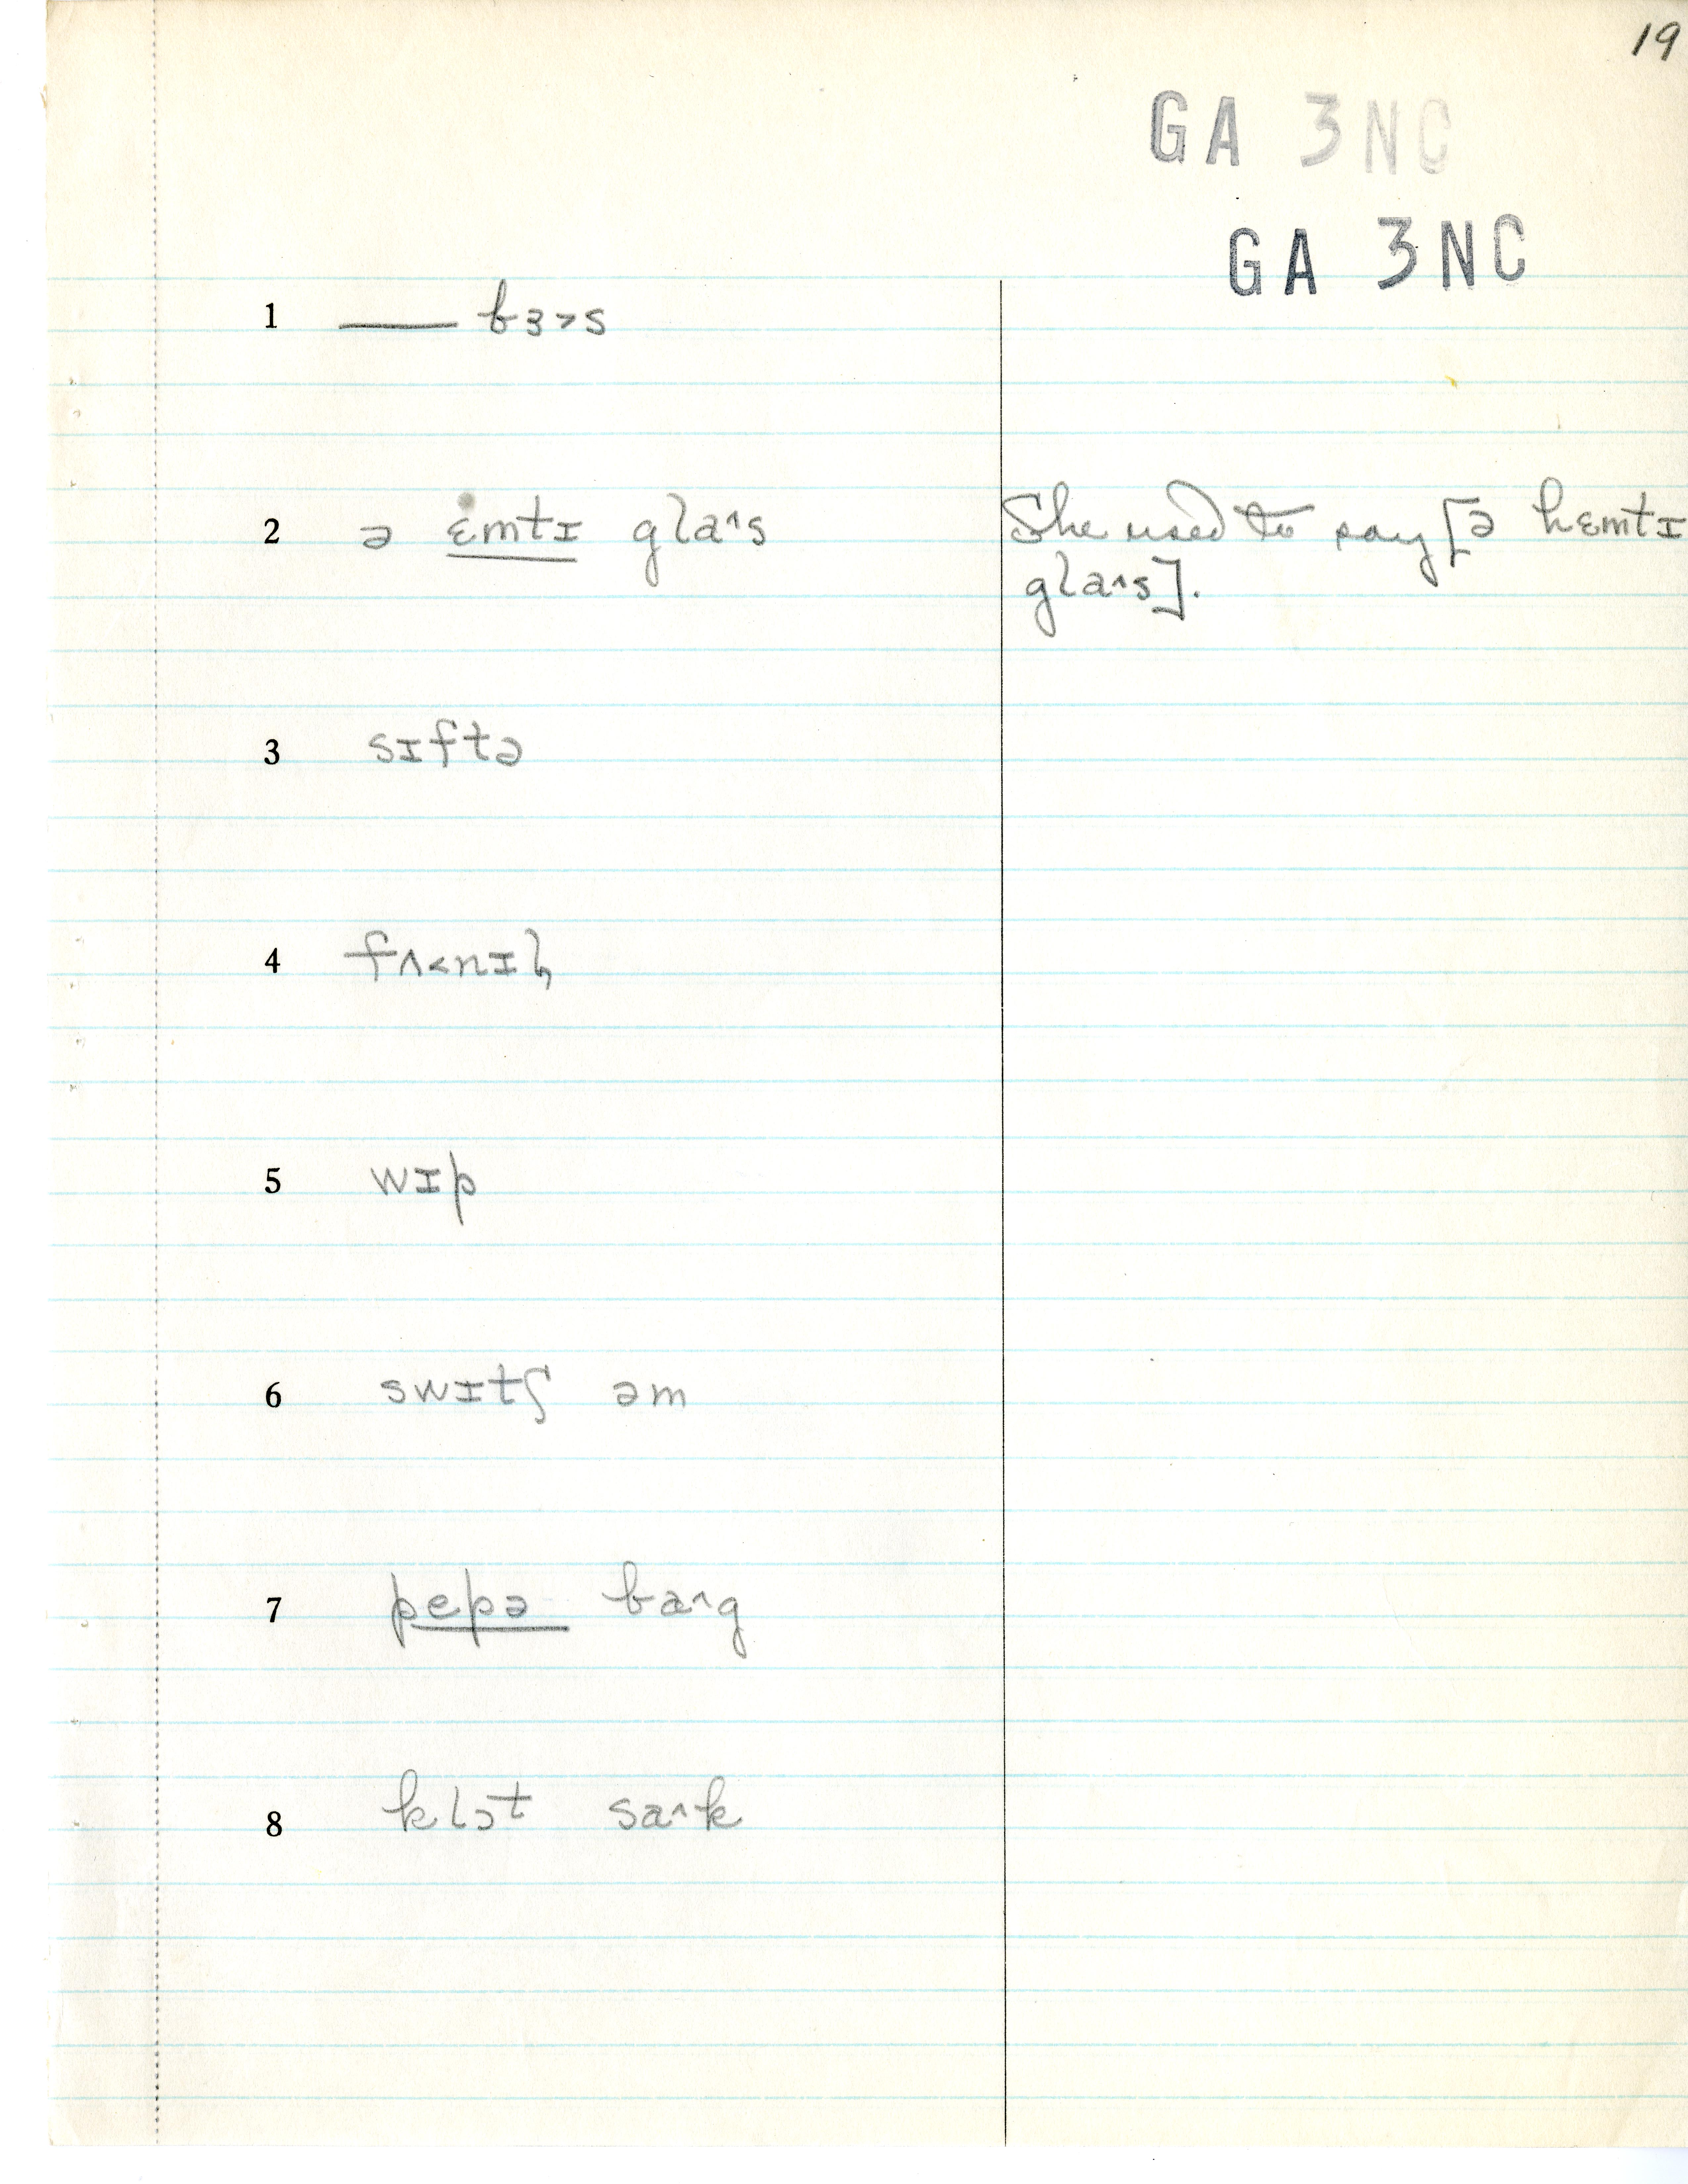 19
GA 3NC
GA 3NC
1 ____ bɜ˃s
2 ə ɛmtɪ glaˆs She used to say [ə hɛmtɪ
glaˆs].
3 sɪftə
4 fʌ˂nɪɫ̩
5 wɪp
6 swɪtʃ əm
7 pepə baˆg
8 klɔt saˆk